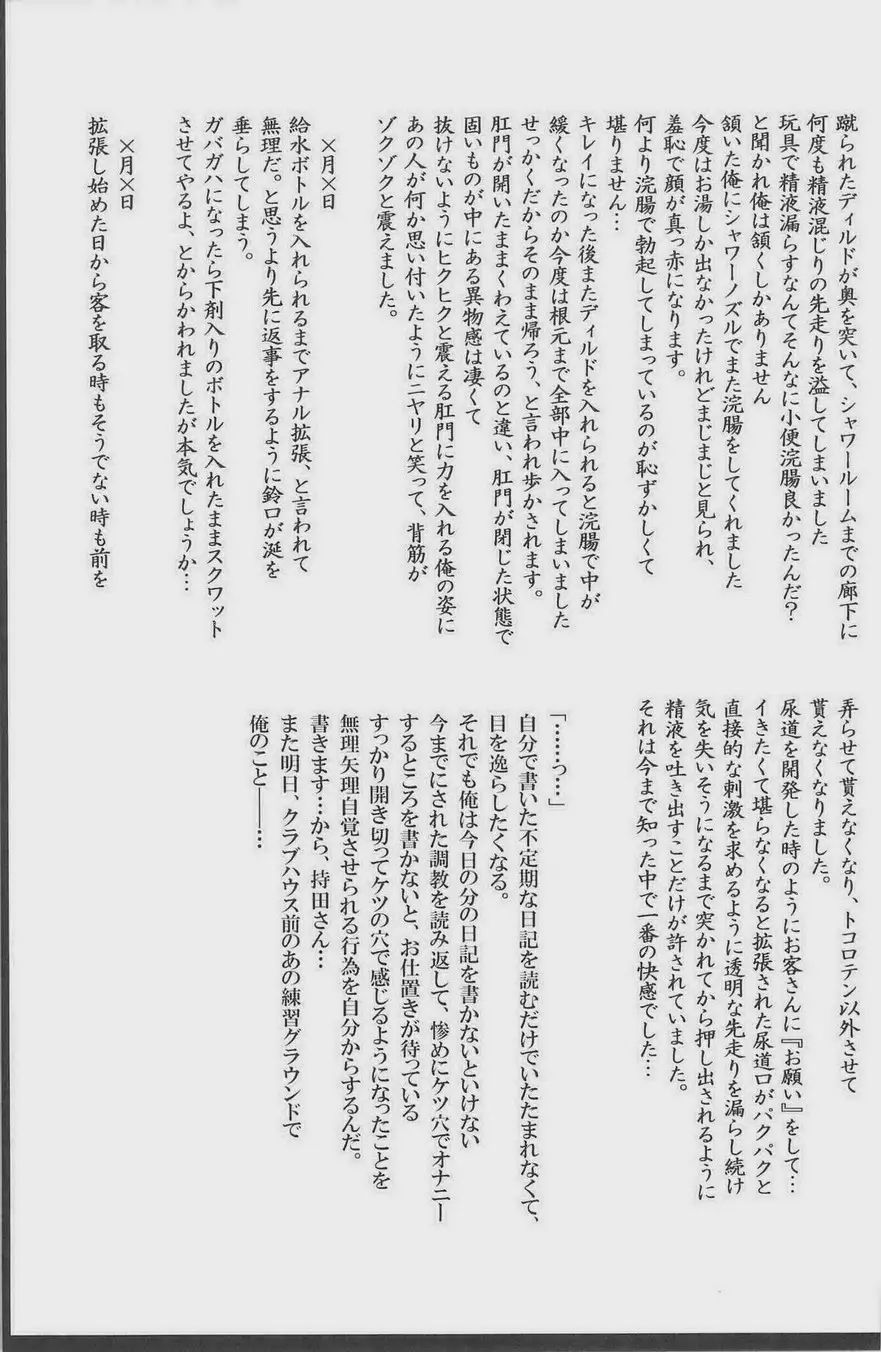 蹴られたディルドが奥を突いて、シャワールームまでの廊下に
何度も精液混じりの先走りを溢してしまいました
玩具で精液漏らすなんてそんなに小便浣腸良かったんだ?
と聞かれ俺は頷くしかありません
頷いた俺にシャワーノズルでまた浣腸をしてくれました
今度はお湯しか出なかったけれどまじまじと見られ、
羞恥で顔が真っ赤になります。
何より浣腸で勃起してしまっているのが恥ずかしくて
堪りません…
キレイになった後またディルドを入れられると浣腸で中が
緩くなったのか今度は根元まで全部中に入ってしまいました
せっかくだからそのまま帰ろう、と言われ歩かされます。
肛門が開いたままくわえているのと違い、肛門が閉じた状態で
固いものが中にある異物感は凄くて
抜けないようにヒクヒクと震える肛門に力を入れる俺の姿に
あの人が何か思い付いたようにニヤリと笑って、背筋が
ゾクゾクと震えました。
×月×日
給水ボトルを入れられるまでアナル拡張、と言われて
無理だ。と思うより先に返事をするように鈴口が涎を
垂らしてしまう。
ガバガハになったら下剤入りのボトルを入れたままスクワット
させてやるよ、とからかわれましたが本気でしょうか…
×月×日
拡張し始めた日から客を取る時もそうでない時も前を
弄らせて貰えなくなり、トコロテン以外させて
貰えなくなりました。
尿道を開発した時のようにお客さんに『お願い』をして…
イきたくて堪らなくなると拡張された尿道口がパクパクと
直接的な刺激を求めるように透明な先走りを漏らし続け
気を失いそうになるまで突かれてから押し出されるように
精液を吐き出すことだけが許されていました。
それは今まで知った中で一番の快感でした…
「……っ…」
自分で書いた不定期な日記を読むだけでいたたまれなくて、
目を逸らしたくなる。
それでも俺は今日の分の日記を書かないといけない
今までにされた調教を読み返して、惨めにケツ穴でオナニー
するところを書かないと、お仕置きが待っている
すっかり開き切ってケツの穴で感じるようになったことを
無理矢理自覚させられる行為を自分からするんだ。
書きます…から、持田さん…
また明日、クラブハウス前のあの練習グラウンドで
俺のこと――…